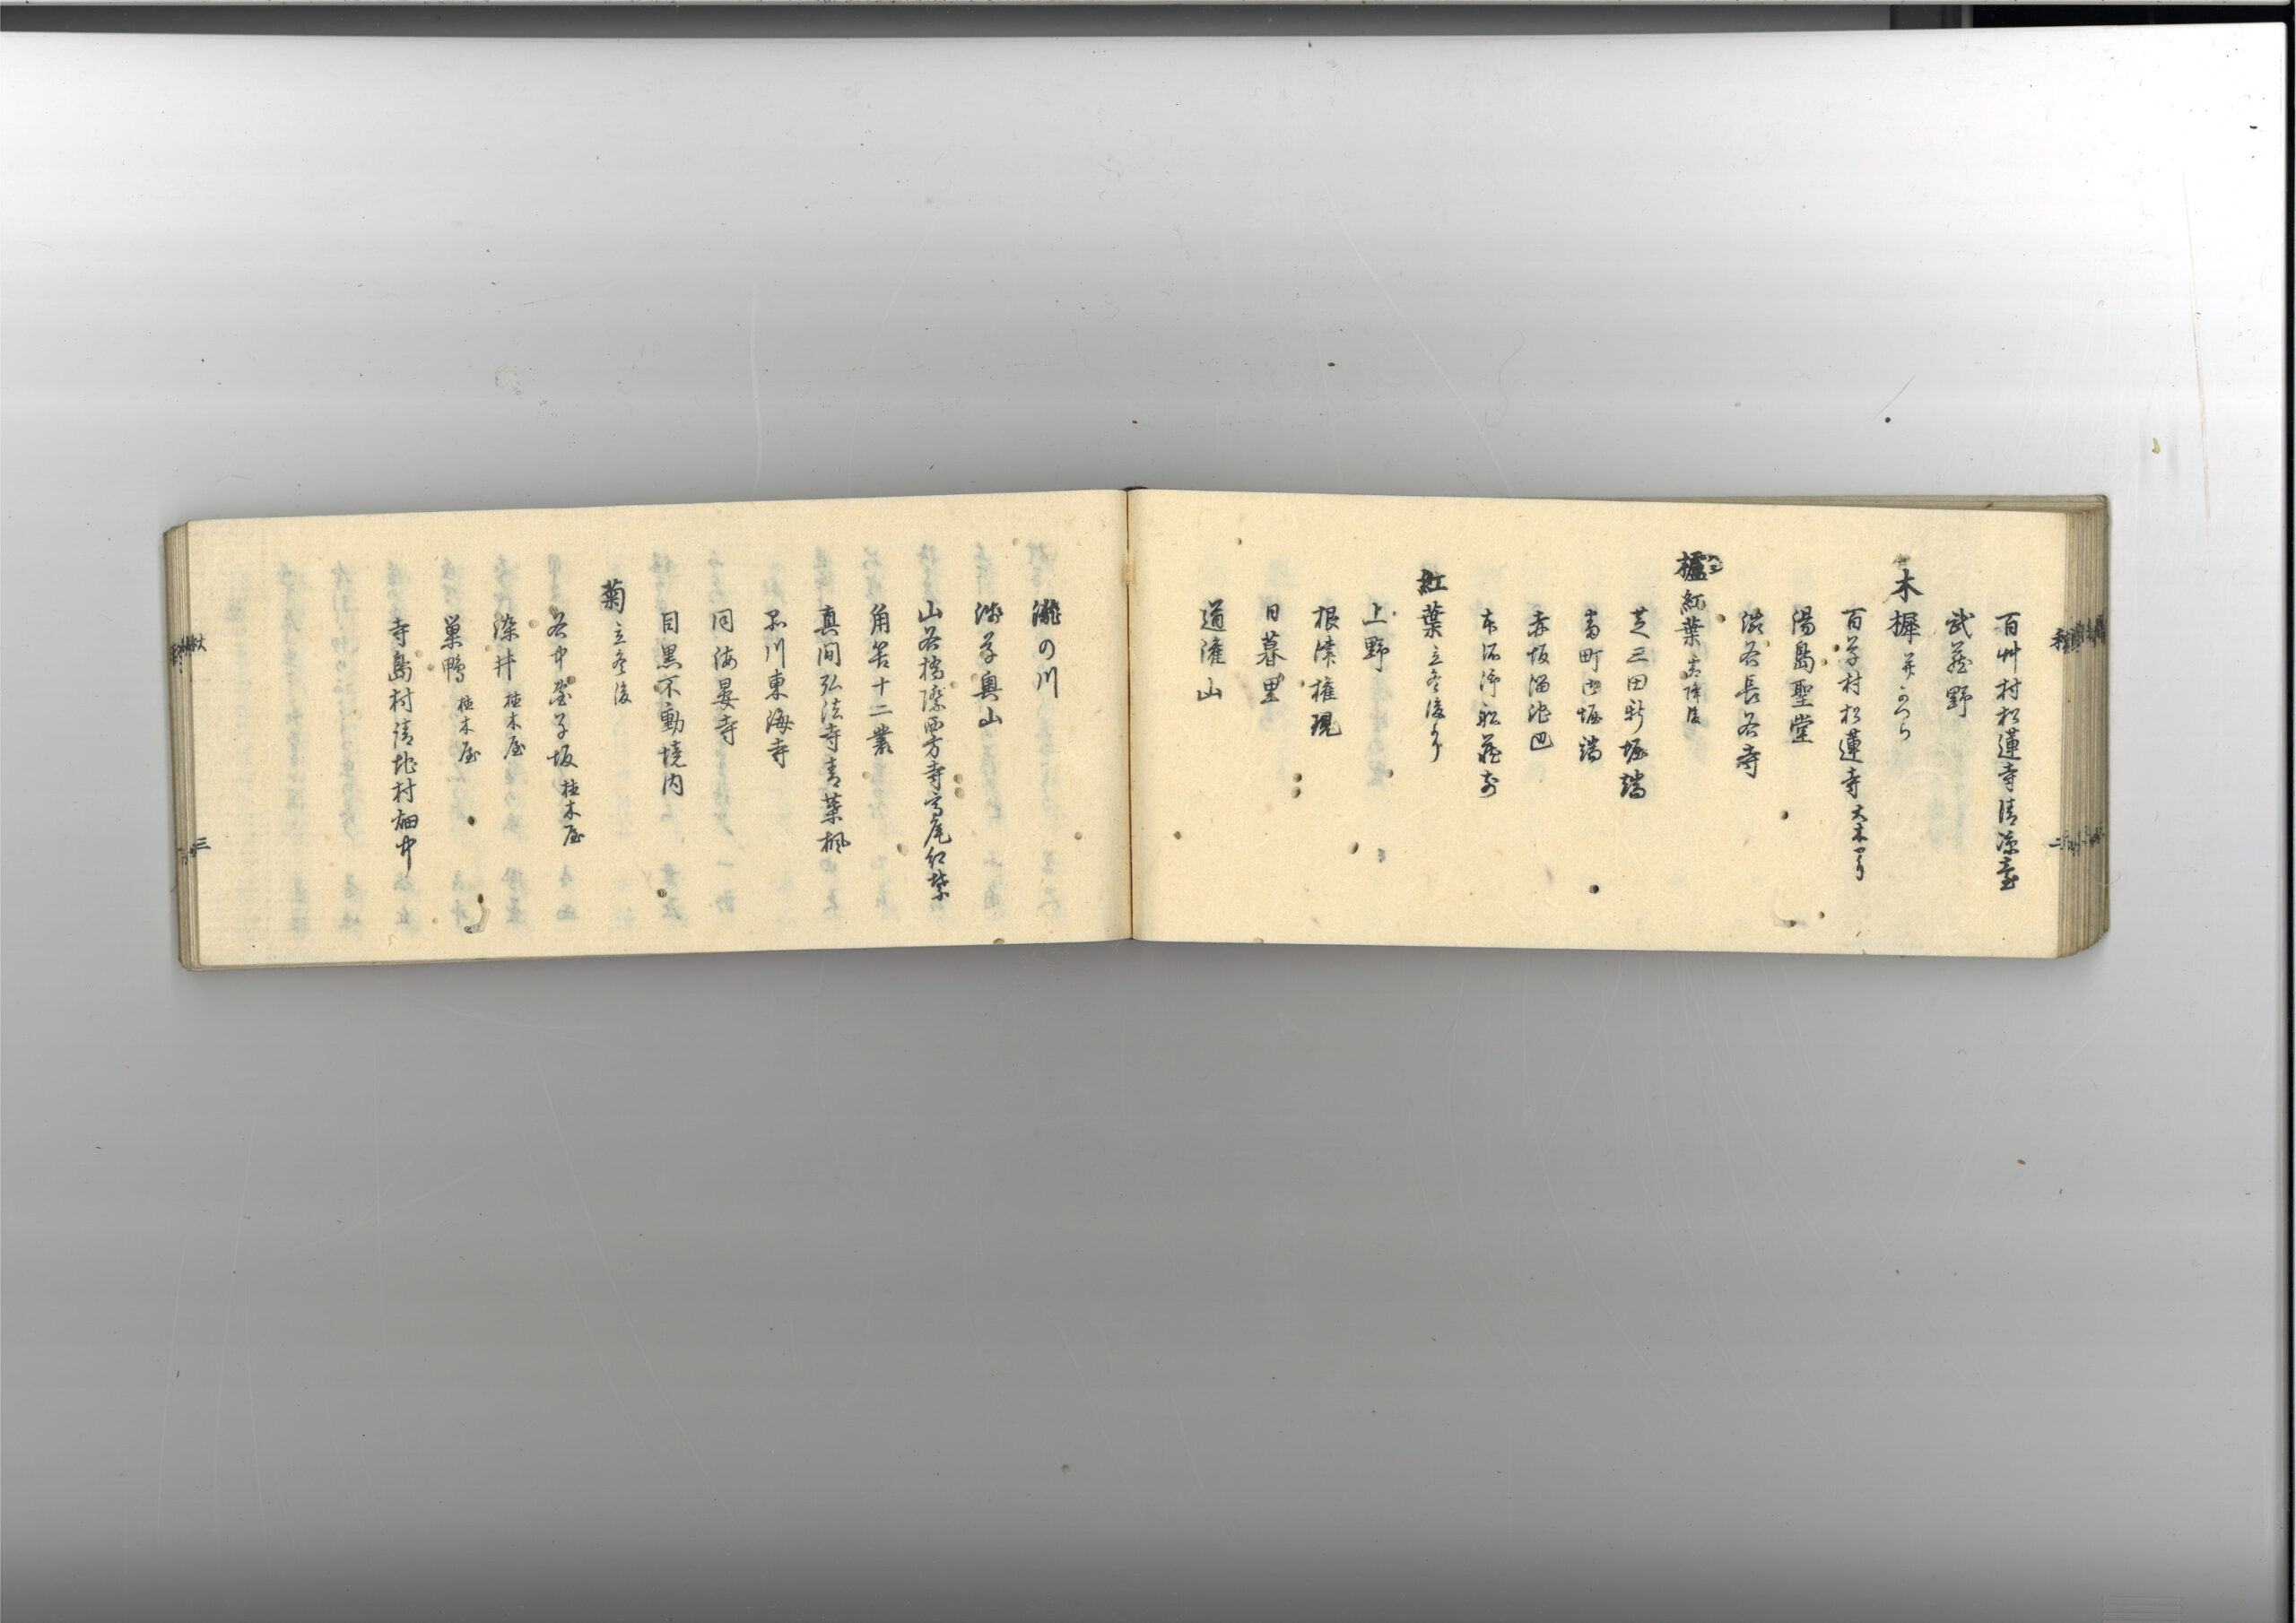 百艸村松蓮寺清涼臺
武蔵野
木樨 并かつら
百草村松蓮寺 大木アリ
湯島聖堂
渋谷長谷寺
櫨紅葉
芝三田新堀端
番町御堀端
赤坂溜池辺
本所御船蔵前
紅葉 立冬後ゟ
上野
根津権現
日暮里
道潅山
瀧の川
浅草奥山
山谷橋際西方寺高尾紅葉
角筈十二叢
真間弘法寺青葉楓
品川東海寺
同海晏寺
目黒不動境内
菊 立冬後
谷中蛍子坂 植木屋
染井 植木屋
巣鴨 植木屋
寺島村請地村畑中
三